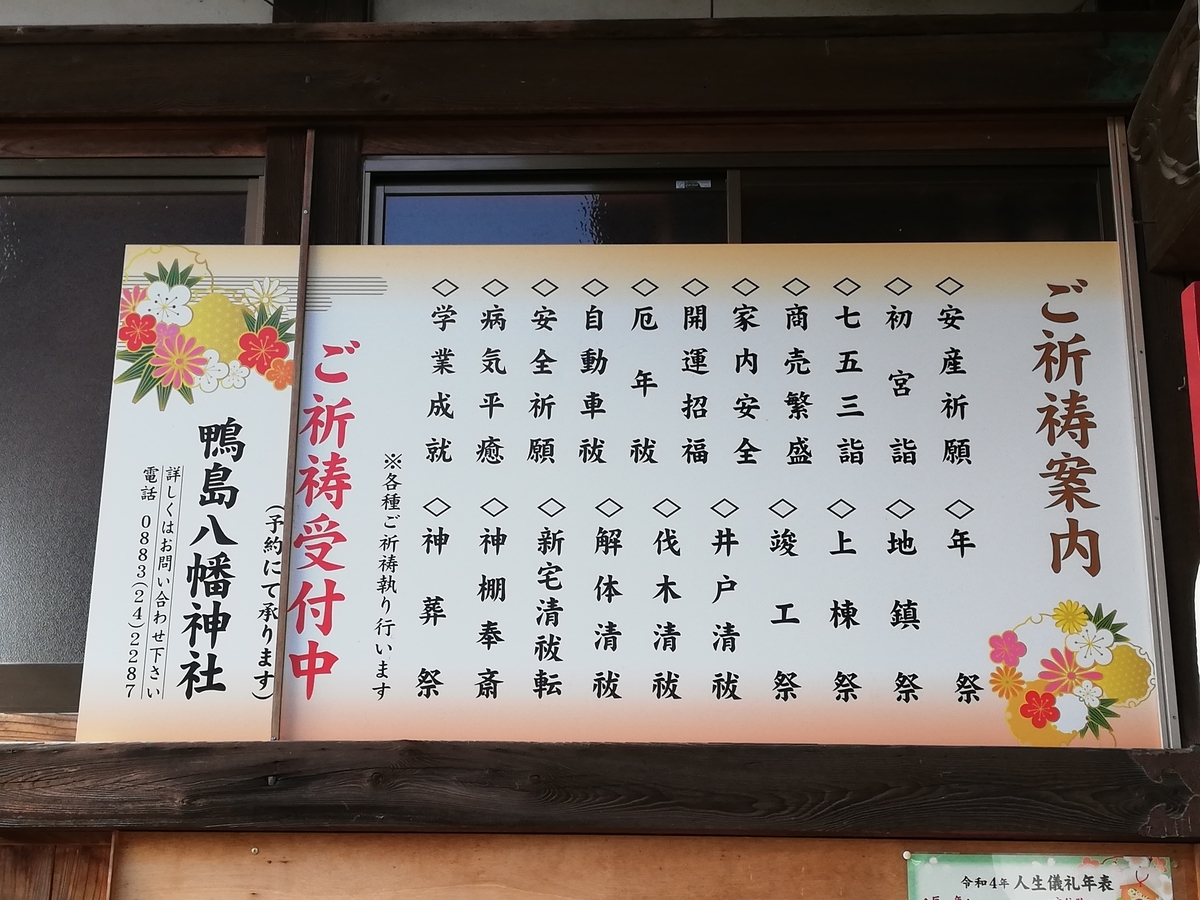 ご祈祷案内
◇安産祈願
◇初宮詣
◇七五三詣
◇商売繁盛
◇家内安全
◇開運招福
◇厄年祓
◇自動車祓
◇安全祈願
◇病気平癒
◇学業成就
◇年祭
◇地鎮祭
◇上棟祭
◇竣工祭
◇井戸清祓
◇伐木清祓
◇解体清祓
◇新宅清祓転
◇神棚奉斎
◇神葬祭
※各種ご祈祷執り行います
ご祈祷受付中
(予約にて承ります)
鴨島八幡神社
詳しくはお問い合わせ下さい
電話 0883(24)2287
令和4年 人生儀礼年表